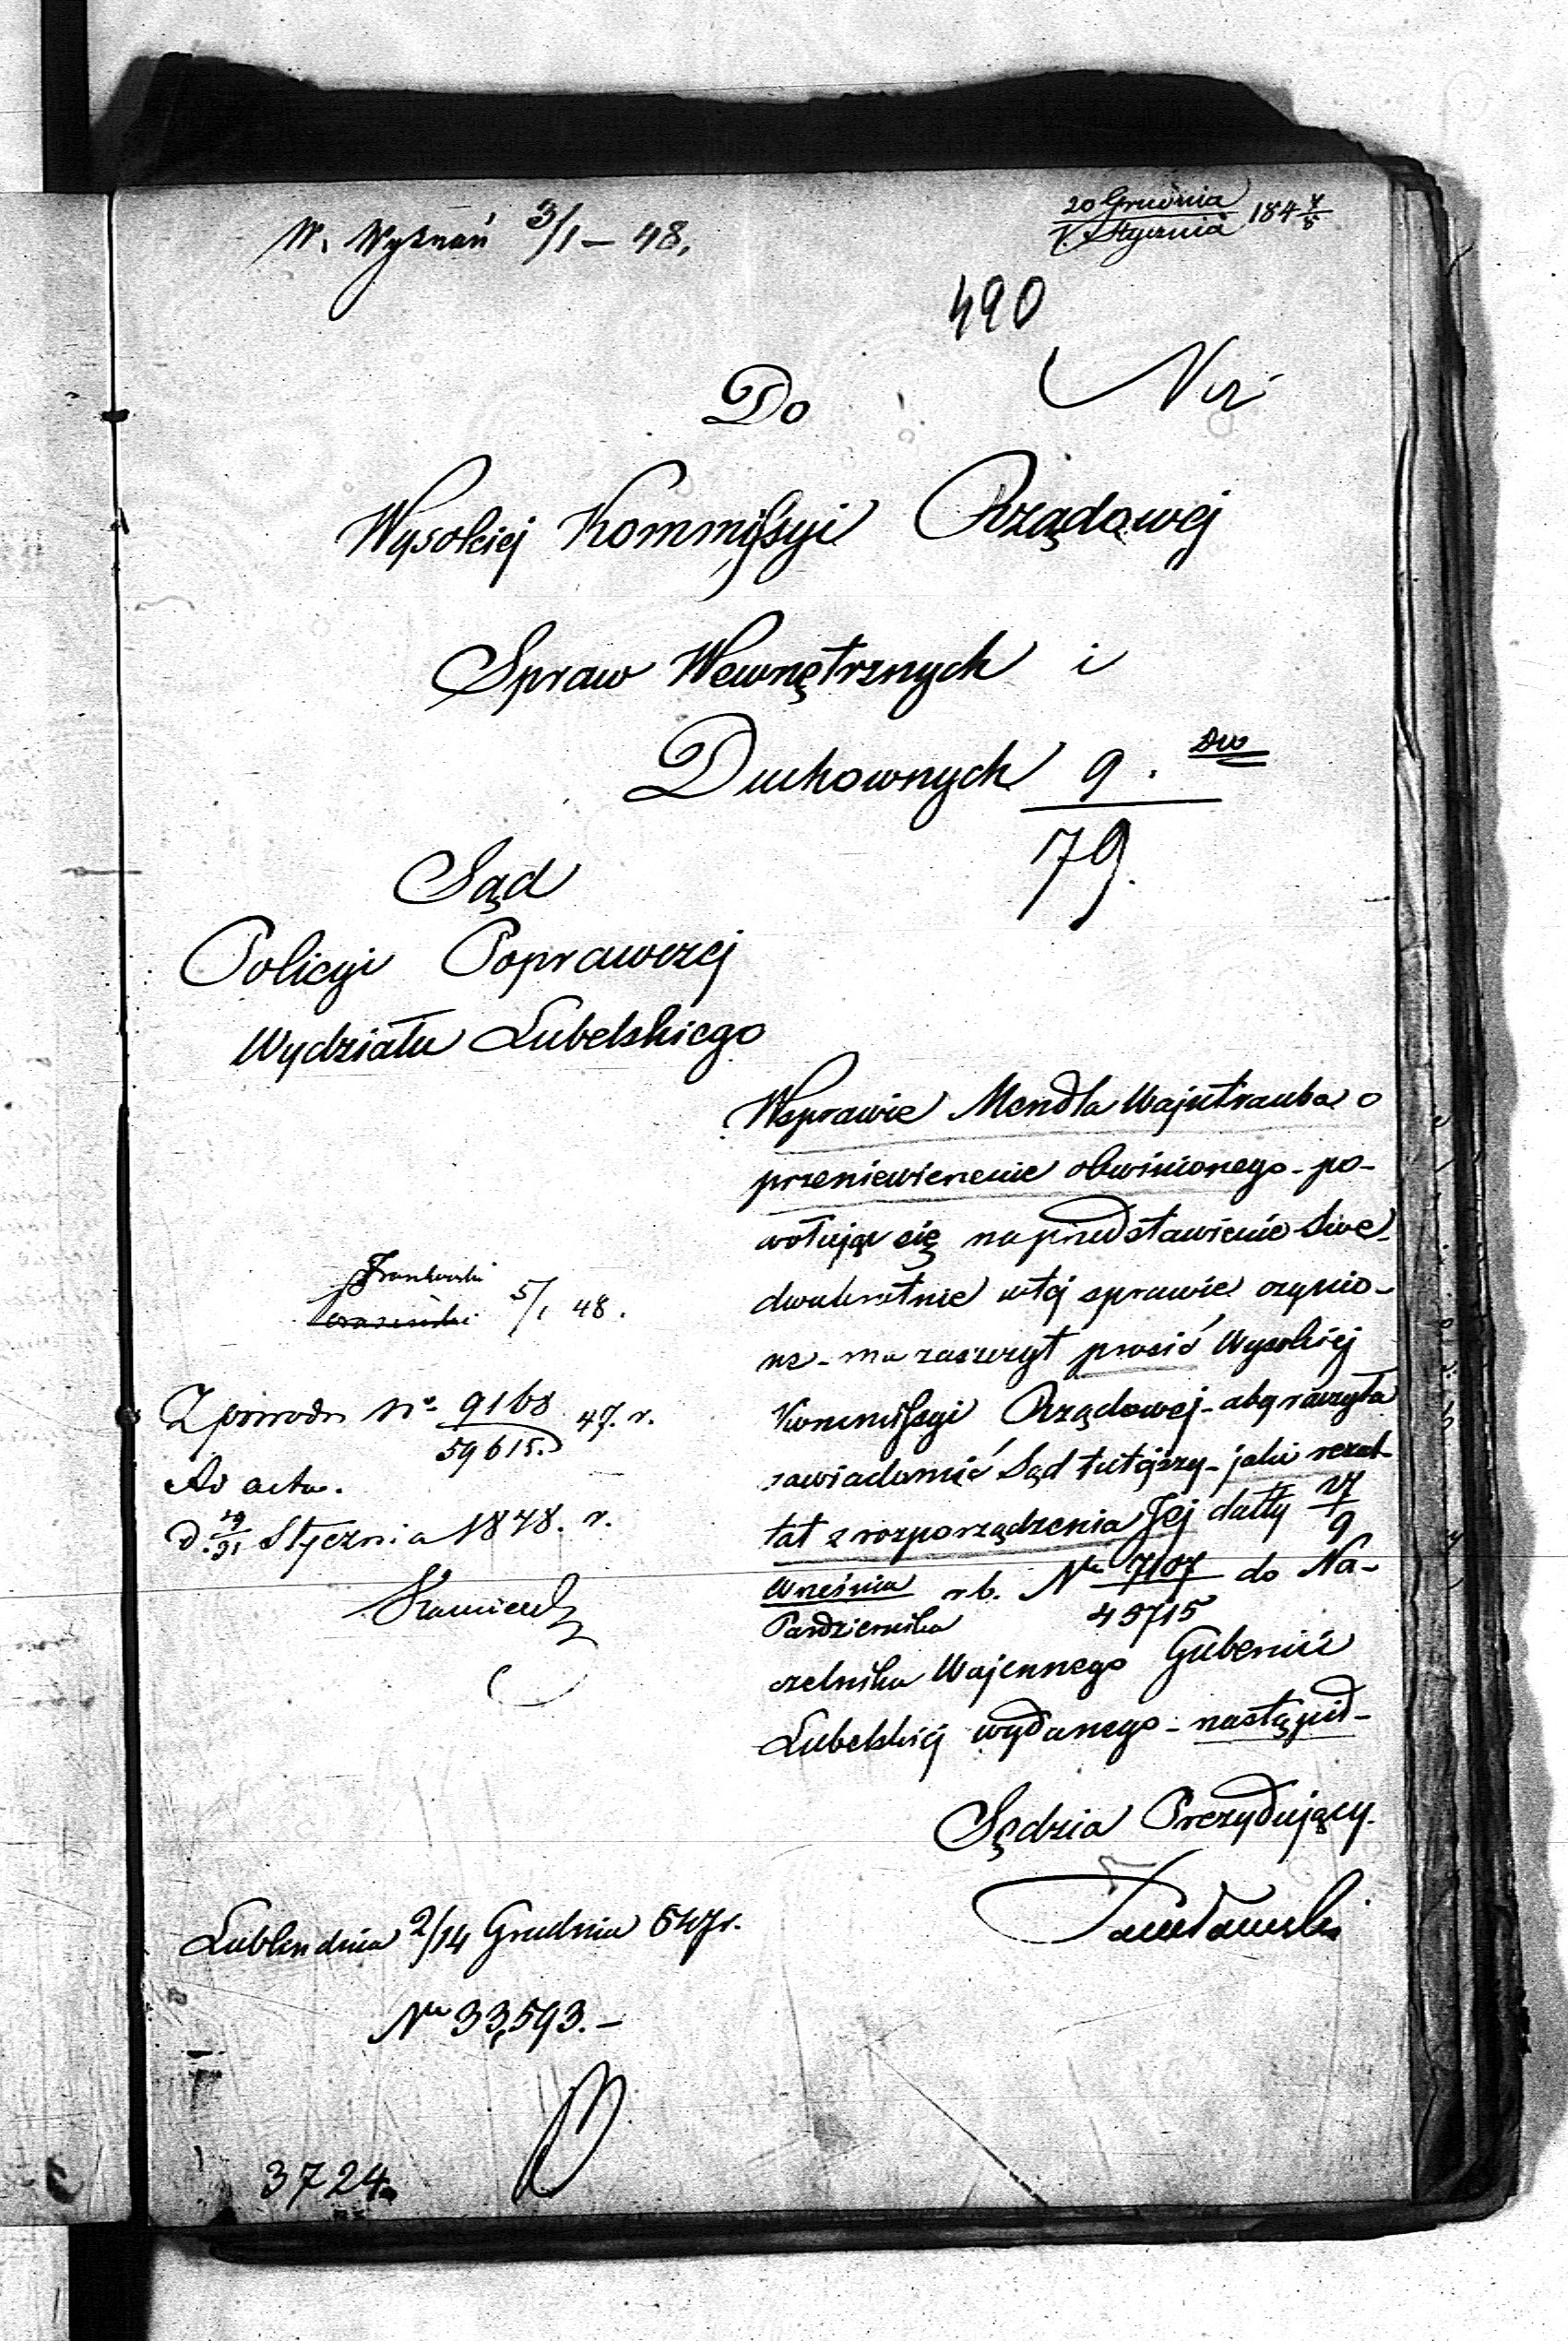 W. Wyznań 3/1 – 48.
20 Grudnia
1. Stycznia 184 7/8
490
Do
Wysokiej Kommissyi Rządowej
Spraw Wewnętrznych i
Duchownych 9.
79.
Sąd
Policyi Poprawczej
Wydziału Lubelskiego
Wsprawie Mendla Wajntrauba o
przeniewierzenie obwinionego – po-
wołując się na przedstawienie swe
dwukrotnie wtej sprawie czynio-
ne – ma zaszczyt prosić Wysokiej
Kommissyi Rządowej – aby raczyła
zawiadomić Sąd tutejszy – jaki rezul-
tat z rozporządzenia Jej datty 27/9
Września
Pazdziernika rb. No 7107/45715 do Na-
czelnika Wojennego Gubernii
Lubelskiej wydanego – nastąpił –
Sędzia Prezydujący.
5/1 48.
No 9168/59615 47. r.
Ad acta.
d. 19/31 Stycznia 1848. r.
Lublin dnia 2/14 Grudnia 847 r.
No 33,593. –
3724